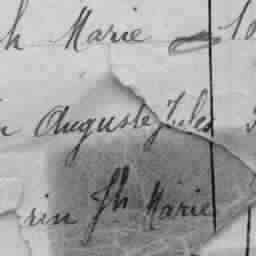 h Marie
n Auguste Jules
rin Jh Marie